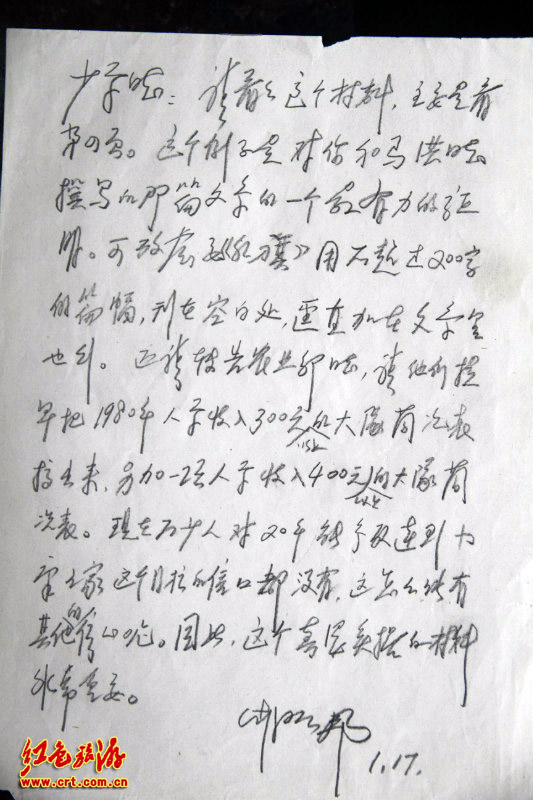 同志：请看看这个材料，主要是看
第四页。这个例子是对你和马洪同志
撰写的那篇文章的一个最有力的证
明。可《红旗》用不超过200字
的篇幅，刊在空白处，直加在文章里
也行。还请转告农业部同志，请他们提
早把1980年人平收入300元以上的大队简况表
搞出来，另加一张人平收入400元以上的大队简
况表。现在不少人对20年能争取达到小
康之家这个目标的信心都没有，这怎么能有
其他的信心呢。因此，这个的材料
非常重要。
胡耀邦
1.17.
红色旅游
www.crt.com.cn